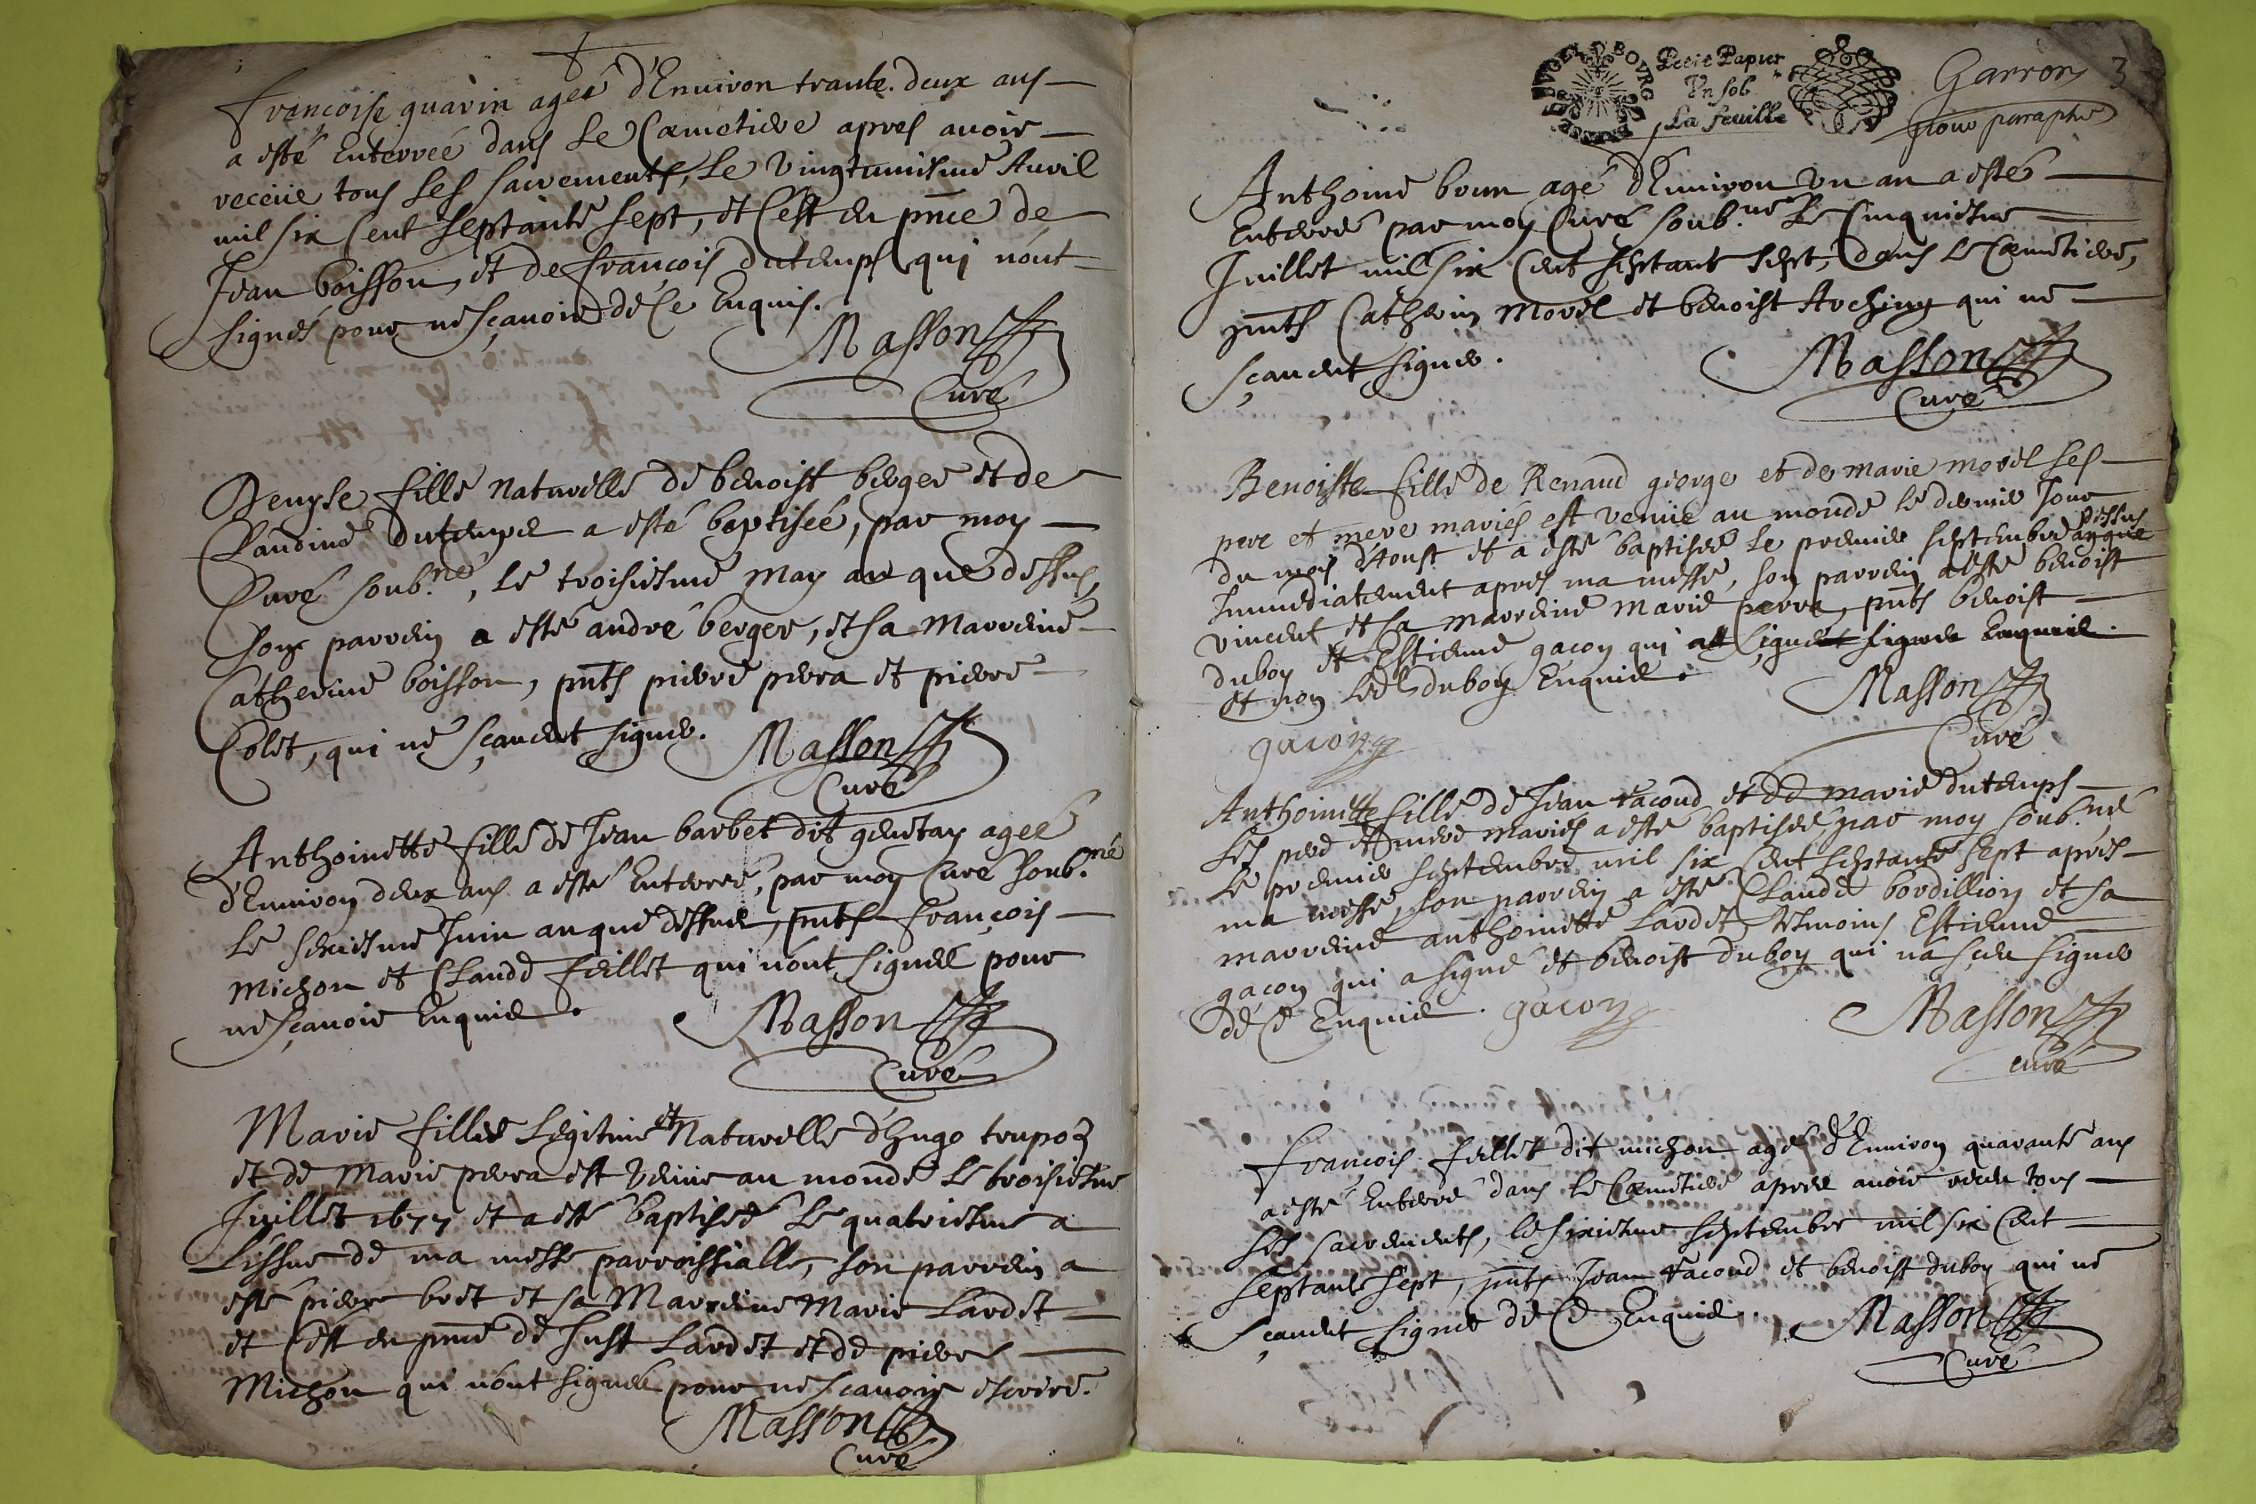 Francoise quarin ageé d'Enuiron trante. deux ans
a esté Enterreé dans Le Cœmetiere apres auoir
receüe tous ses sacrements, Le Vingtuniesme Auril
mil six Cent septante sept, et C'est en pn̄ce de
Jean boisson, et de françois dutemps qui nont
signés pour ne sçauoir de Ce Enquis.
Masson
Curé
Denyse fille Naturelle de benoist berger et de
Claudine dutemps a esté baptiseé, par moy
Curé soub.né, Le troisiesme may an que dessus,
son parrein a esté andré berger, et sa Marreine
Catherine boisson, pn̄ts pierre perra et pierre
Colet, qui ne sçauent signer.
Masson
Curé
Anthoinette fille de Jean barbet dit genetay ageé
d'Enuiron deux ans a esté Enterreé, par moy Curé soub.né
Le seziesme Juin an que dessus, pn̄ts françois
michon et Claude feillet qui n'ont signés pour
ne sçauoir Enquis.
Masson
Curé
Marie fille Legitime et Naturelle d'hugo
et de Marie perra est Venüe au monde Le troisiesme
Juillet 1677 et a esté baptiseé Le quatriesme a
L'issue de ma messe parroissialle, son parrein a
esté pierre bret et sa Marreine Marie Lardet
et C'est en pn̄ce de Just Lardet et de pierre
Michon qui n'ont signés pour ne sçauoir escrire.
Masson
Curé
BVGEY BOVRG
Petit Papier
Vn sol
La feuille
Garron 3
pour paraphe
Anthoine brun agé d'Enuiron Vn an a esté
Enterré par moy Curé soub.né Le Cinquiesme
Juillet mil six Cent septante sept, dans Le Cœmetiere,
pn̄ts Catherin morel et benoist qui ne
sçauent signer.
Masson
Curé
Benoiste fille de Renaud george et de marie morel ses
pere et mere mariés est venüe au monde le dernier Jour
du mois d'Aoust et a esté baptiseé Le premier septembre an que dessus
Immediatement apres ma messe, son parrein a esté benoist
vincent et sa marreine marie perra, pn̄ts benoist
duboy et Estienne gacon qui a signé
et non Led. duboy Enquis.
Masson
Curé
gacon
Anthoinette fille de Jean tacoud et de marie dutemps
ses pere et mere mariés a esté baptiseé par moy soub.né
Le premier septembre mil six Cent septante sept apres
ma messe, son parrein a esté Claude bordillion et sa
marreine anthoinette Lardet, tesmoins Estienne
gacon qui a signé et benoist duboy qui n'a sceu signer
de Ce Enquis. gacon
Masson
curé
françois feillet dit michon agé d'Enuiron quarante ans
a esté Enterré dans Le Cœmetiere apres auoir receu tous
ses sacrements, le sixiesme septembre mil six Cent
septante sept, pn̄ts Jean tacoud et benoist duboy qui ne
sçauent signer de Ce Enquis.
Masson
Curé